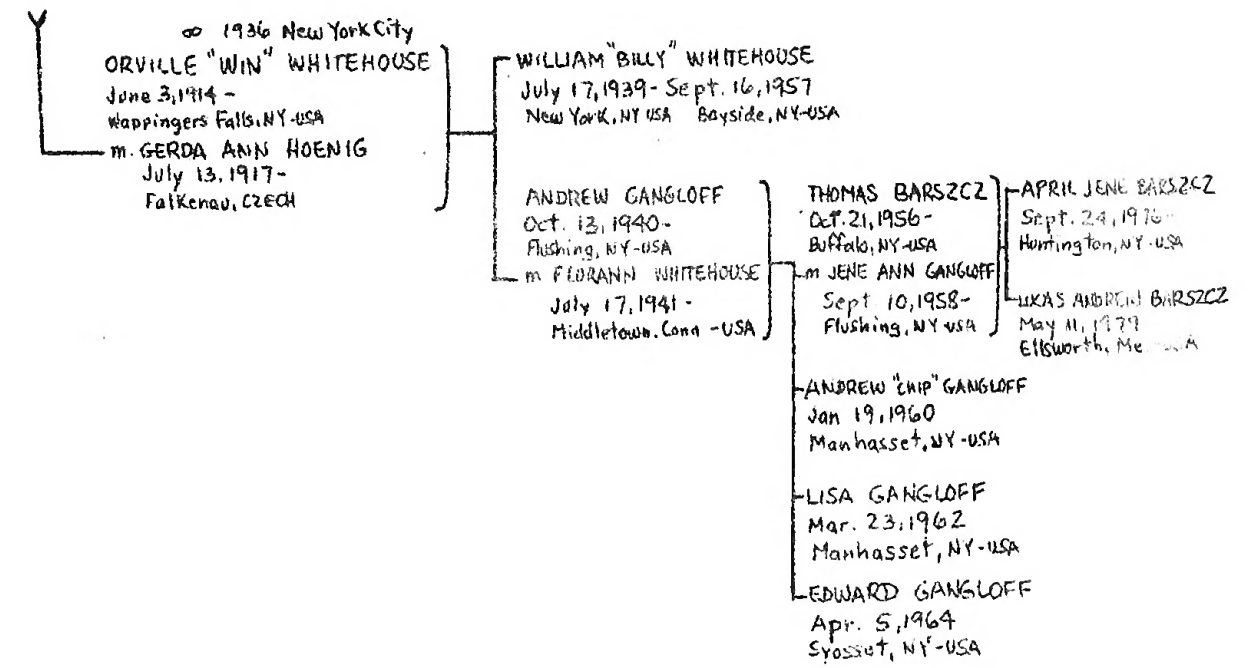 ∞ 1936 New York City
ORVILLE "WIN" WHITEHOUSE
June 3, 1914 -
Wappingers Falls, NY-USA
m. GERDA ANN HOENIG
July 13, 1917 -
Falkenau, CZECH
WILLIAM "BILLY" WHITEHOUSE
July 17, 1939 - Sept. 16, 1957
New York, NY USA Bayside, NY-USA
ANDREW GANGLOFF
Oct. 13, 1940 -
Flushing, NY-USA
m FLORANN WHITEHOUSE
July 17, 1941 -
Middletown. Conn -USA
THOMAS BARSZCZ
Oct. 21, 1956 -
Buffalo, NY-USA
m JENE ANN GANGLOFF
Sept. 10, 1958 -
Flushing, NY USA
APRIL JENE BARSZCZ
Sept. 24, 1976 -
Huntington, NY-USA
LUKAS ANDREW BARSZCZ
May 11, 1979
Ellsworth, Me
ANDREW "CHIP" GANGLOFF
Jan 19, 1960
Manhasset, NY-USA
LISA GANGLOFF
Mar. 23, 1962
Manhasset, NY-USA
EDWARD GANGLOFF
Apr. 5, 1964
Syosset, NY-USA